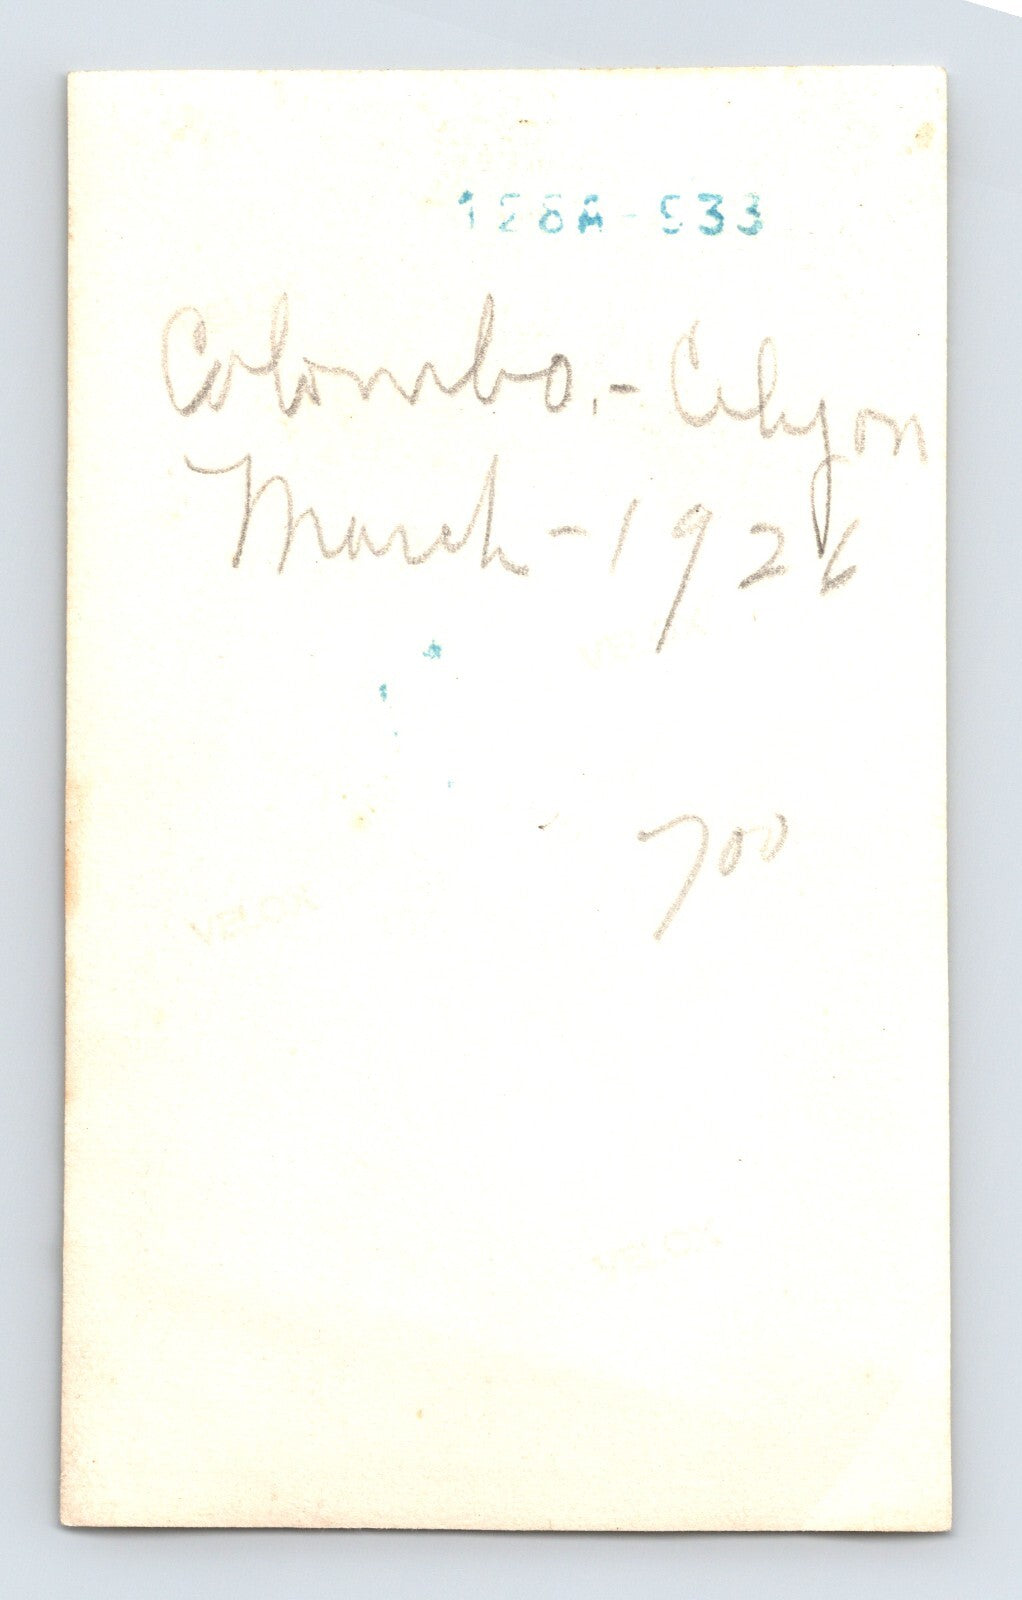 128A-533
Colombo.- Celyon
March-1926
700
VELOX
VELOX